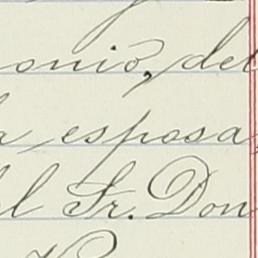 onió, del
a esposa,
el Sr. Don